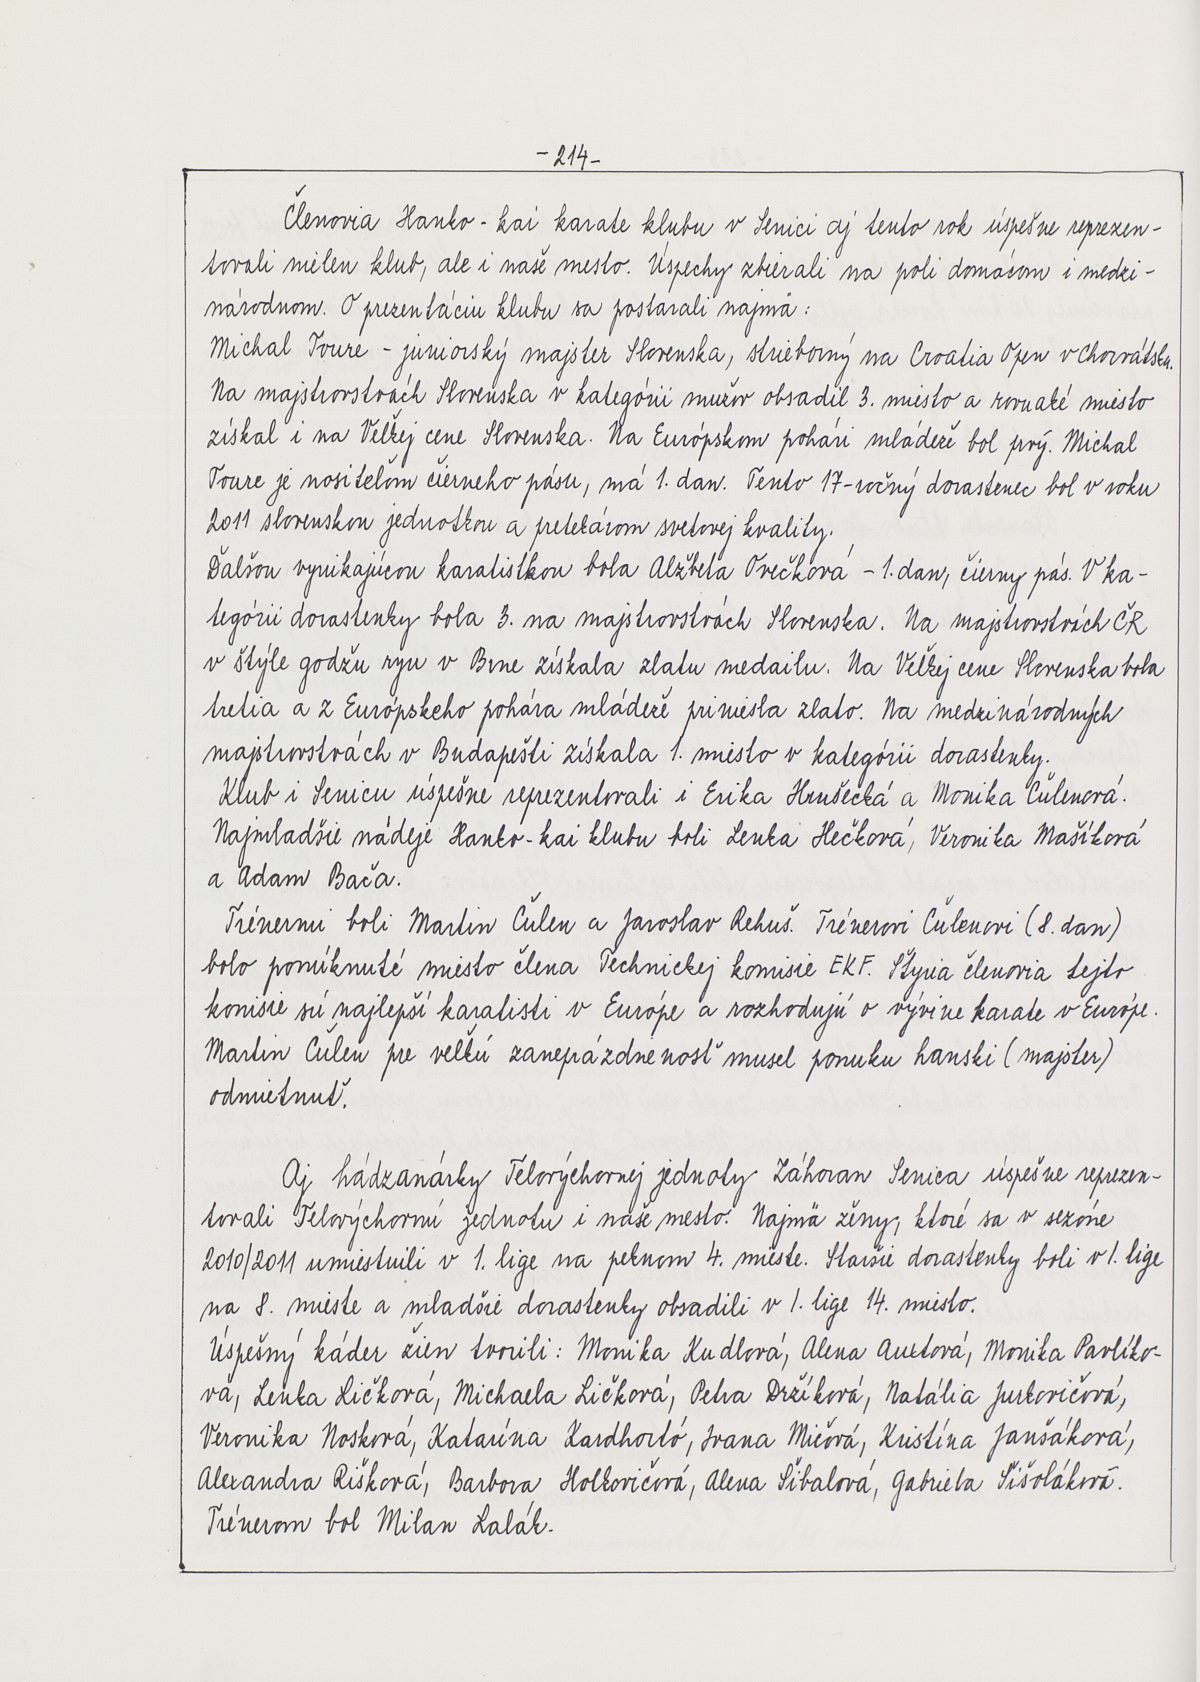 -214-
Členovia Hanko-kai karate klubu v Senici aj tento rok úspešne reprezen-
tovali nielen klub, ale i naše mesto. Úspechy zbierali na poli domácom i medzi-
národnom. O prezentáciu klubu sa postarali najmä:
Michal Toure - juniorský majster Slovenska, strieborný na Croatia Open v Chorvátsku.
Na majstrovstvách Slovenska v kategórii mužov obsadil 3. miesto a rovnaké miesto
získal i na Veľkej cene Slovenska. Na Európskom pohári mládeže bol prvý. Michal
Toure je nositeľom čierneho pásu, má 1. dan. Tento 17-ročný dorastenec bol v roku
2011 slovenskou jednotkou a pretekárom svetovej kvality.
Ďalšou vynikajúcou karatistkou bola Alžbeta Ovečková - 1. dan, čierny pás. V ka-
tegórii dorastenky bola 3. na majstrovstvách Slovenska. Na majstrovstvách ČR
v štýle godžu ryu v Brne získala zlatú medailu. Na Veľkej cene Slovenska bola
tretia a z Európskeho pohára mládeže priniesla zlato. Na medzinárodných
majstrovstvách v Budapešti získala 1. miesto v kategórii dorastenky.
Klub i Senicu úspešne reprezentovali i Erika Hrušecká a Monika Čulenová.
Najmladšie nádeje Hanko-kai klubu boli Lenka Hečková, Veronika Mašíková
a Adam Bača.
Trénermi boli Martin Čulen a Jaroslav Rehuš. Trénerovi Čulenovi (8. dan)
bolo ponúknuté miesto člena Technickej komisie EKF. Štyria členovia tejto
komisie sú najlepší karatisti v Európe a rozhodujú o vývine karate v Európe.
Martin Čulen pre veľkú zaneprázdnenosť musel ponuku hanski (majster)
odmietnuť.
Aj hádzanárky Telovýchovnej jednoty Záhoran Senica úspešne reprezen-
tovali Telovýchovnú jednotu i naše mesto. Najmä ženy, ktoré sa v sezóne
2010/2011 umiestnili v 1. lige na peknom 4. mieste. Staršie dorastenky boli v 1. lige
na 8. mieste a mladšie dorastenky obsadili v 1. lige 14. miesto.
Úspešný káder žien tvorili: Monika Kudlová, Alena Auxtová, Monika Pavlíko-
vá, Lenka Ličková, Michaela Ličková, Petra Držíková, Natália Jurkovičová,
Veronika Nosková, Katarína Kardhortó, Ivana Mičová, Kristína Janšáková,
Alexandra Rišková, Barbora Holkovičová, Alena Šibalová, Gabriela Šišoláková.
Trénerom bol Milan Lalák.